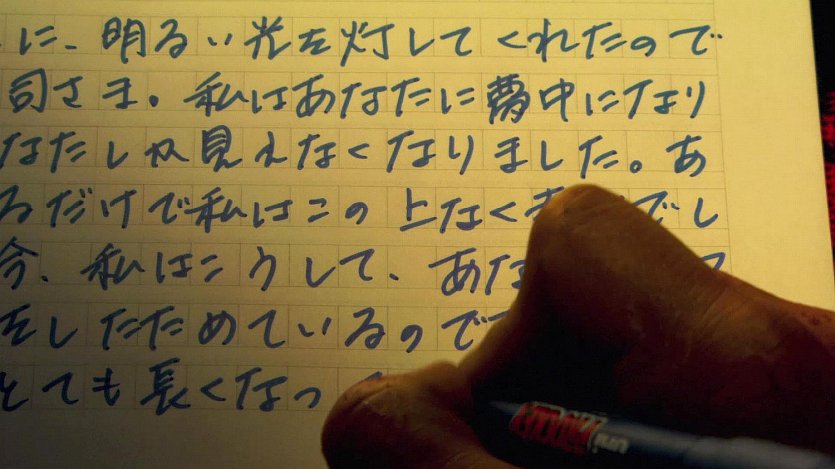 に、明るい光を灯してくれたので
司さま。私はあなたに夢中になり
なたしか見えなくなりました。あ
るだけで私はこの上なく幸 でし
今、私はこうして、あな て
をしたためているので
とても長くなっ
uni